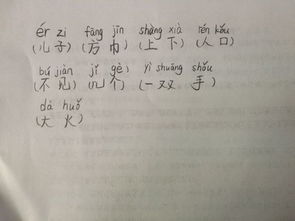 ér zi fāng jīn shàng xià rén kǒu
(儿子) (方巾) (上下) (人口)
bú jiàn jǐ gè yì shuāng shǒu
(不见) (几个) (一双手)
dà huǒ
(大火)